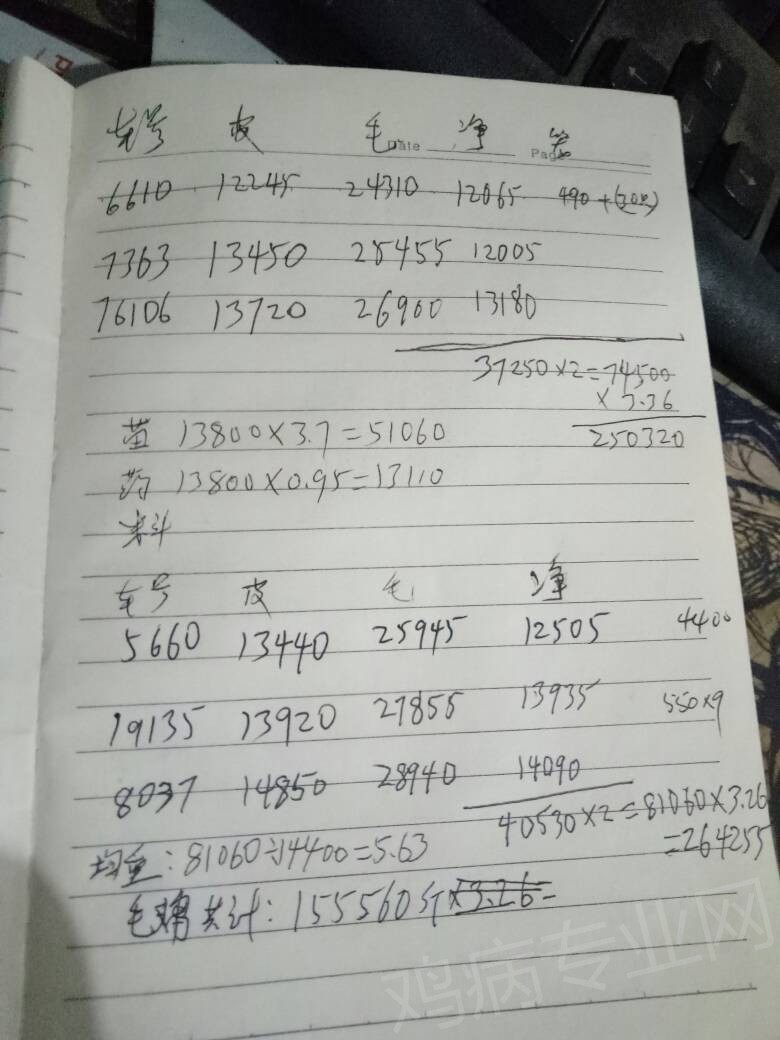 车号 皮 毛 净 笼
Date Page
6610 12245 24310 12065 490+(30只)
7363 13450 25455 12005
76106 13720 26900 13180
37250×2=74500
×3.36
250320
苗 13800×3.7=51060
药 13800×0.95=13110
料
车号 皮 毛 净
5660 13440 25945 12505 4400
19135 13920 27855 13935 550×9
8037 14850 28940 14090
40530×2=81060×3.26
=264255
均重:81060÷14400=5.63
毛鸡共计:155560斤×3.26=
鸡病专业网